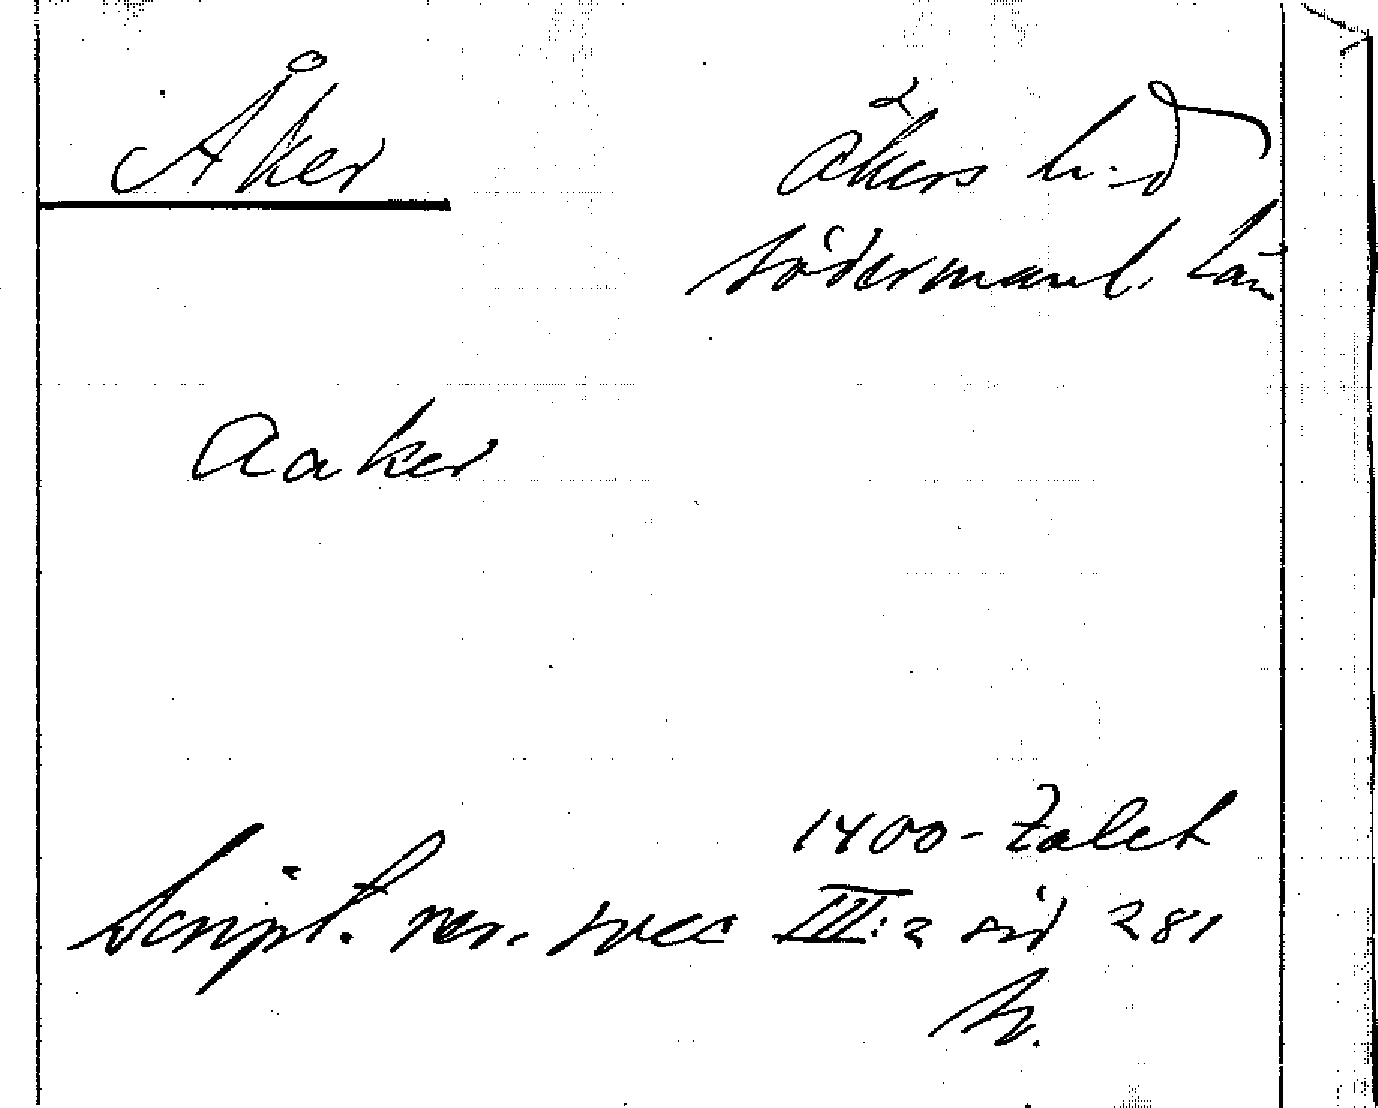 Åker
Åkers h:d
Södermanl. län
Aaker
1400-talet
Script. rer. svec III:2 sid 281